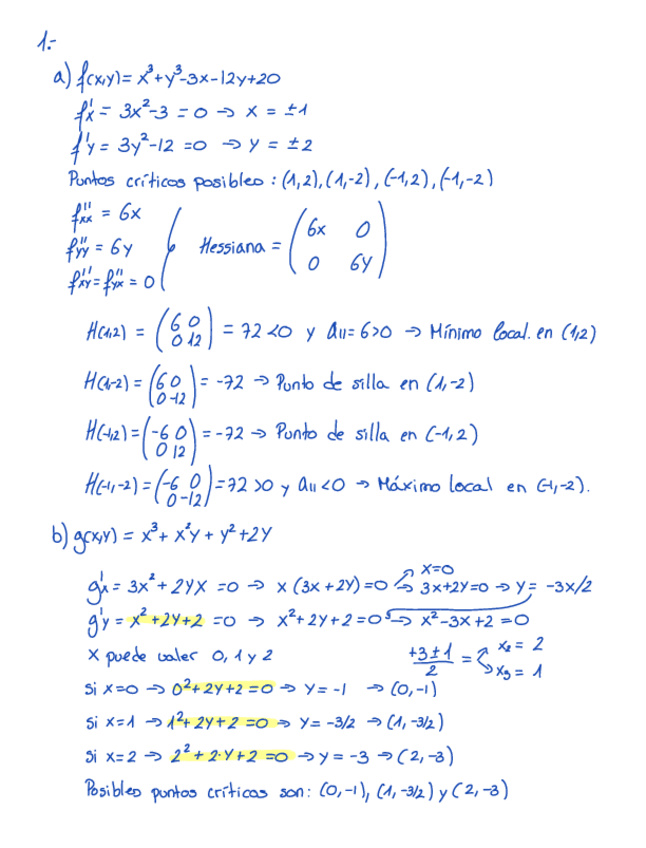 1.-
a) f(x,y) = x³+y³-3x-12y+20
f'x = 3x²-3 = 0 → x = ±1
f'y = 3y²-12 = 0 → y = ±2
Puntos críticos posibles : (1,2), (1,-2), (-1,2), (-1,-2)
f''xx = 6x
f''yy = 6y
f''xy = f''yx = 0
Hessiana = (6x 0
0 6y)
H(1,2) = (6 0
0 12) = 72 <0 y a11 = 6>0 → Mínimo local. en (1,2)
H(1,-2) = (6 0
0 -12) = -72 → Punto de silla en (1,-2)
H(-1,2) = (-6 0
0 12) = -72 → Punto de silla en (-1,2)
H(-1,-2) = (-6 0
0 -12) = 72 >0 y a11 <0 → Máximo local en (-1,-2).
b) g(x,y) = x³ + x²y + y² + 2y
g'x = 3x² + 2yx = 0 → x (3x + 2y) = 0 → x=0
→ 3x+2y=0 → y = -3x/2
g'y = x² + 2y + 2 = 0 → x² + 2y + 2 = 0 → x² - 3x + 2 = 0
x puede valer 0, 1 y 2
+3±1/2 = x2 = 2
x3 = 1
si x=0 → 0² + 2y + 2 = 0 → y = -1 → (0,-1)
si x=1 → 1² + 2y + 2 = 0 → y = -3/2 → (1, -3/2)
si x=2 → 2² + 2·y + 2 = 0 → y = -3 → (2, -3)
Posibles puntos críticos son: (0,-1), (1, -3/2) y (2, -3)